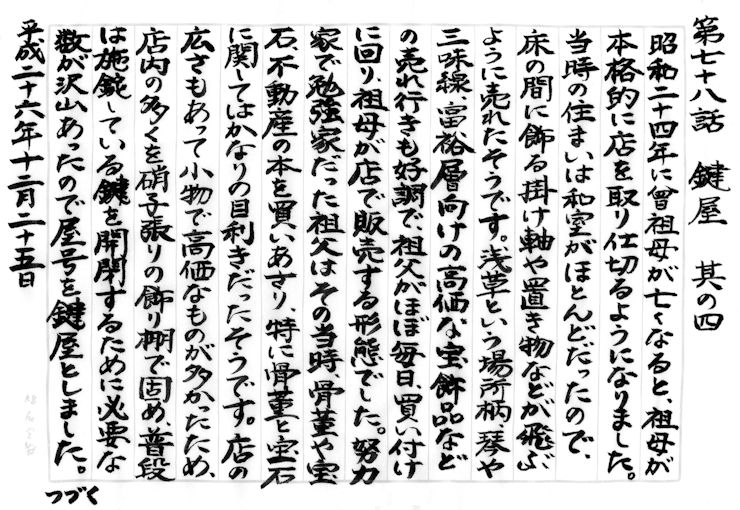 第七十八話　鍵屋　其の四
昭和二十四年に曾祖母が亡くなると、祖母が
本格的に店を取り仕切るようになりました。
当時の住まいは和室がほとんどだったので、
床の間に飾る掛け軸や置き物などが飛ぶ
ように売れたそうです。浅草という場所柄、琴や
三味線、富裕層向けの高価な宝飾品など
の売れ行きも好調で、祖父がほぼ毎日、買い付け
に回り、祖母が店で販売する形態でした。努力
家で勉強家だった祖父はその当時、骨董や宝
石、不動産の本を買いあさり、特に骨董と宝石
に関してはかなりの目利きだったそうです。店の
広さもあって小物で高価なものが多かったため、
店内の多くを硝子張りの飾り棚で固め、普段
は施錠している鍵を開閉するために必要な
数が沢山あったので屋号を鍵屋としました。
平成二十六年十二月二十五日
つづく